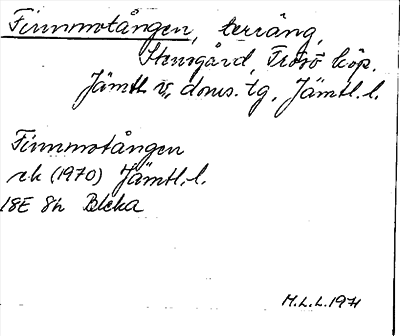 Finnmotången, terräng,
Stensgård, Frösö köp.
Jämtl. v. doms. tg, Jämtl. l.
Finnmotången
rk (1970) Jämtl. l.
18E 8h Bleka
M.L.L. 1971